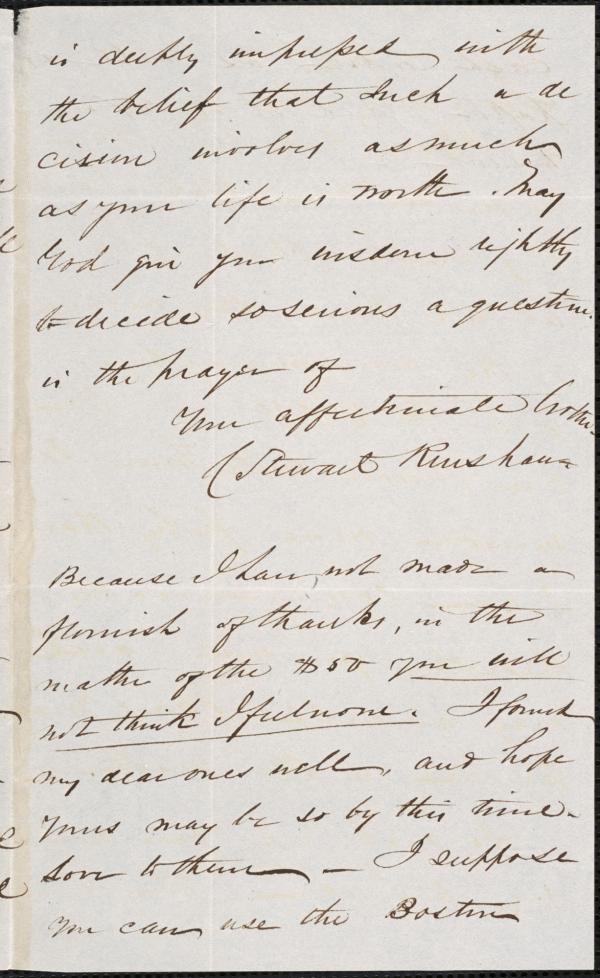 is deeply impressed with
the belief that such a de
cision involves as much
as your life is worth. May
God give you wisdom rightly
to decide so serious a question.
is the prayer of
Your affectionate brother
C Stewart Renshaw
Because I have not made a
flourish of thanks, in the
matter of the $50 you will
not think I feel none. I found
my dear ones well, and hope
yours may be so by this time.
Love to them — I suppose
you can use the Boston